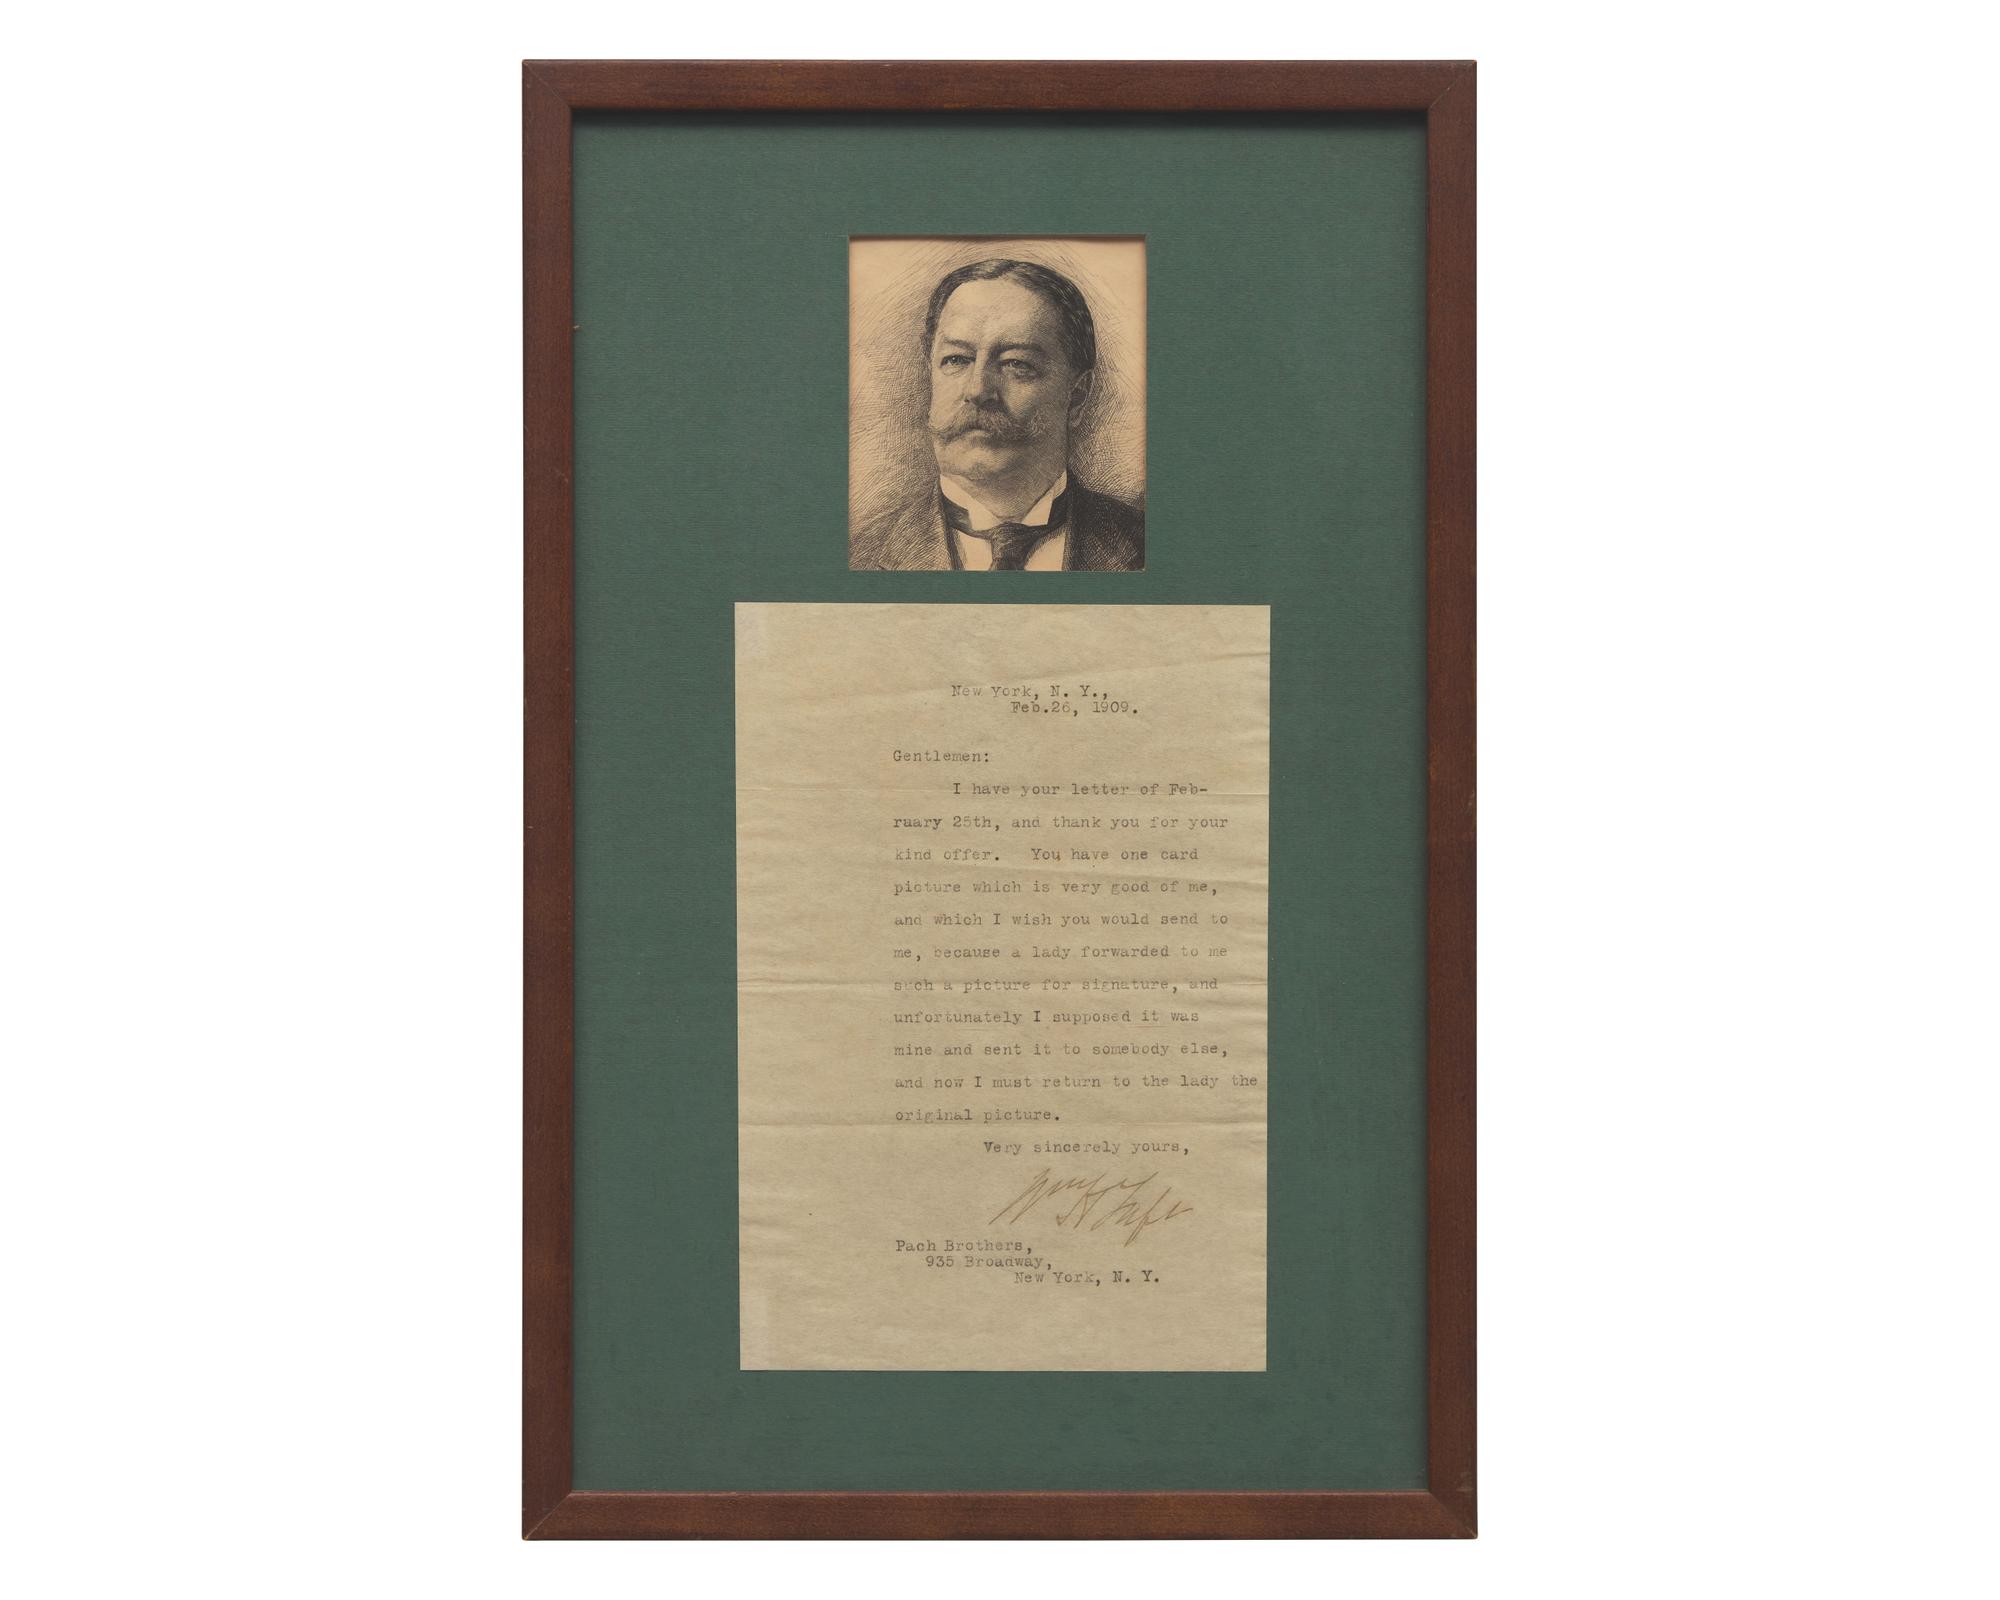 New York, N. Y.,
Feb.26, 1909.
Gentlemen:
I have your letter of Feb-
ruary 25th, and thank you for your
kind offer. You have one card
picture which is very good of me,
and which I wish you would send to
me, because a lady forwarded to me
such a picture for signature, and
unfortunately I supposed it was
mine and sent it to somebody else,
and now I must return to the lady the
original picture.
Very sincerely yours,
Wm H Taft
Pach Brothers,
935 Broadway,
New York, N. Y.